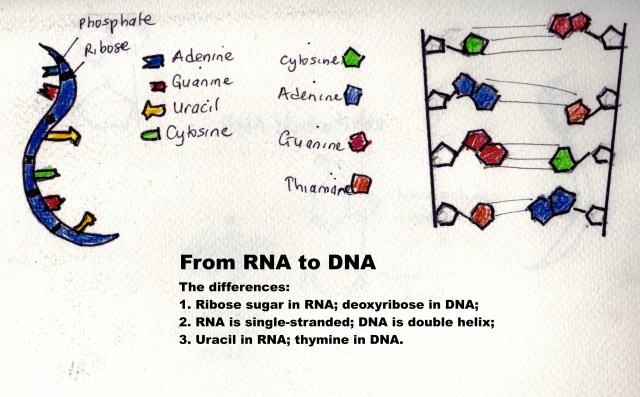 Phosphate
Ribose
Adenine
Guanine
Uracil
Cytosine
Cytosine
Adenine
Guanine
Thiamane
From RNA to DNA
The differences:
1. Ribose sugar in RNA; deoxyribose in DNA;
2. RNA is single-stranded; DNA is double helix;
3. Uracil in RNA; thymine in DNA.